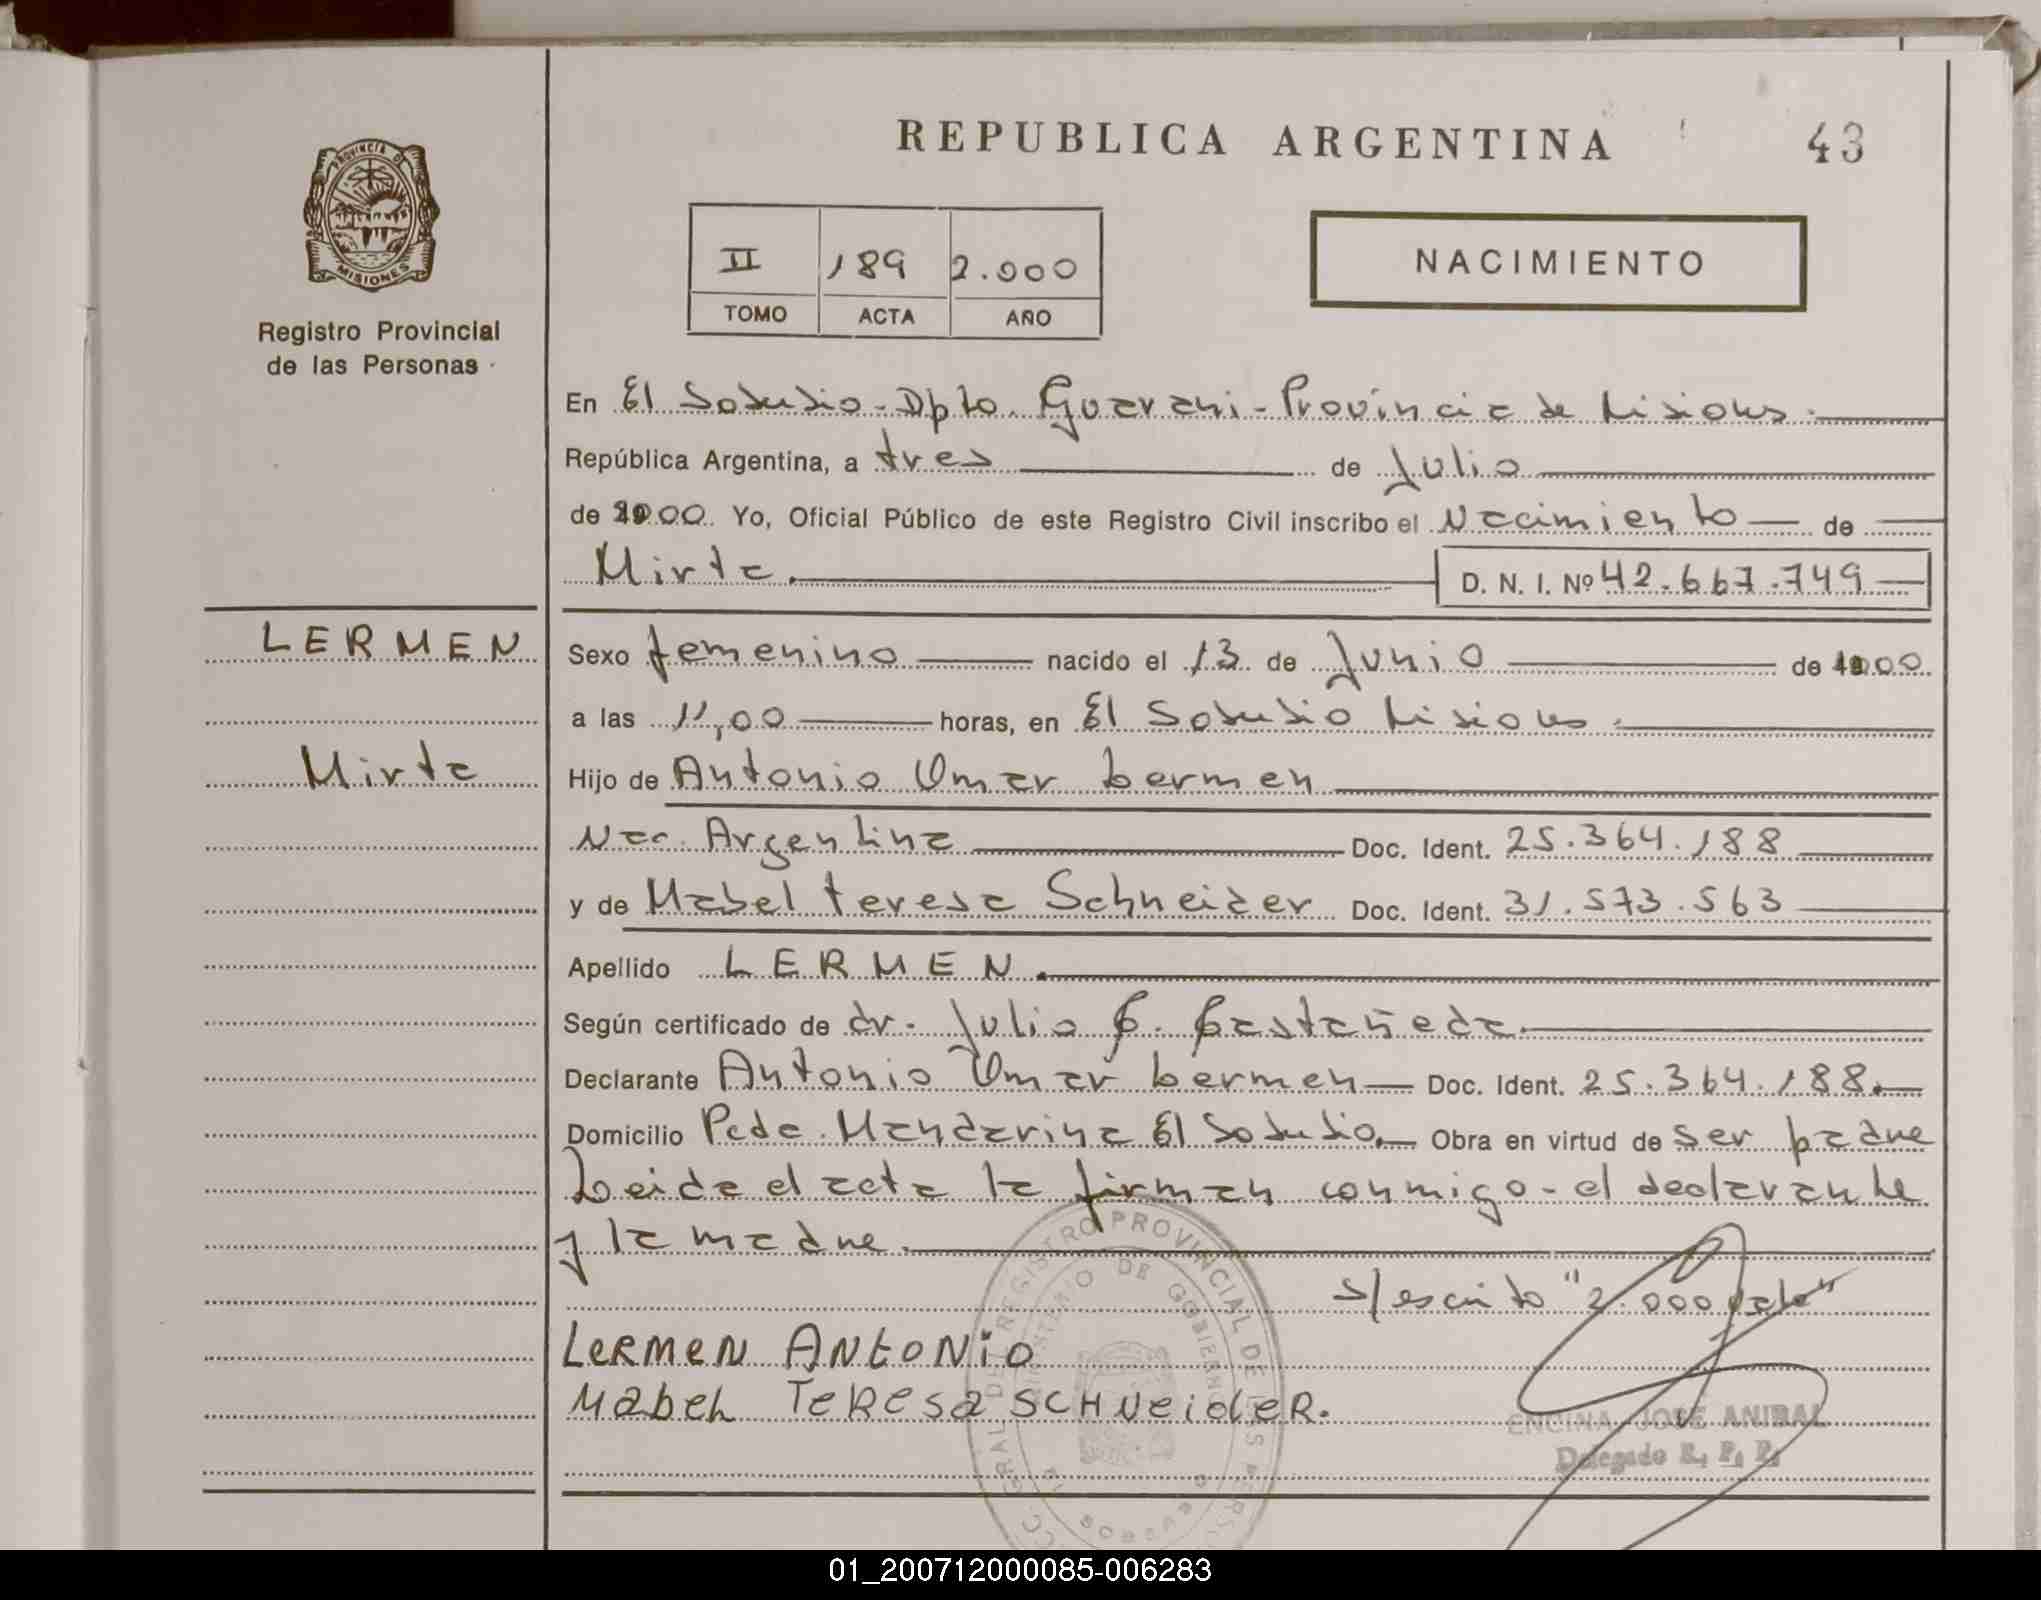 REPUBLICA ARGENTINA
43
PROVINCIA DE
MISIONES
Registro Provincial
de las Personas
II 189 2.000
TOMO ACTA AÑO
NACIMIENTO
En El Soberbio - Dpto. Guarani - Provincia de Misiones.
República Argentina, a tres de Julio
de 2000. Yo, Oficial Público de este Registro Civil inscribo el Nacimiento de
Mirta. D. N. I. Nº 42.667.749
LERMEN
Mirta
Sexo femenino nacido el 13 de Junio de 2000
a las 11,00 horas, en El Soberbio Misiones.
Hijo de Antonio Omar Lermen
Nac. Argentina Doc. Ident. 25.364.188
y de Mabel Teresa Schneider Doc. Ident. 31.573.563
Apellido LERMEN.
Según certificado de dr. Julio C. Castañeda.
Declarante Antonio Omar Lermen Doc. Ident. 25.364.188.
Domicilio Pcda. Mandarina El Soberbio. Obra en virtud de ser padre
Leida el acta la firman conmigo - el declarante
y la madre.
s/escrito "2.000 vale"
LERMEN ANTONIO
MABEL TERESA SCHNEIDER.
ENCINA, JOSE ANIBAL
Delegado R. P. P.
REGISTRO PROVINCIAL DE LAS PERSONAS
MINISTERIO DE GOBIERNO
01_200712000085-006283